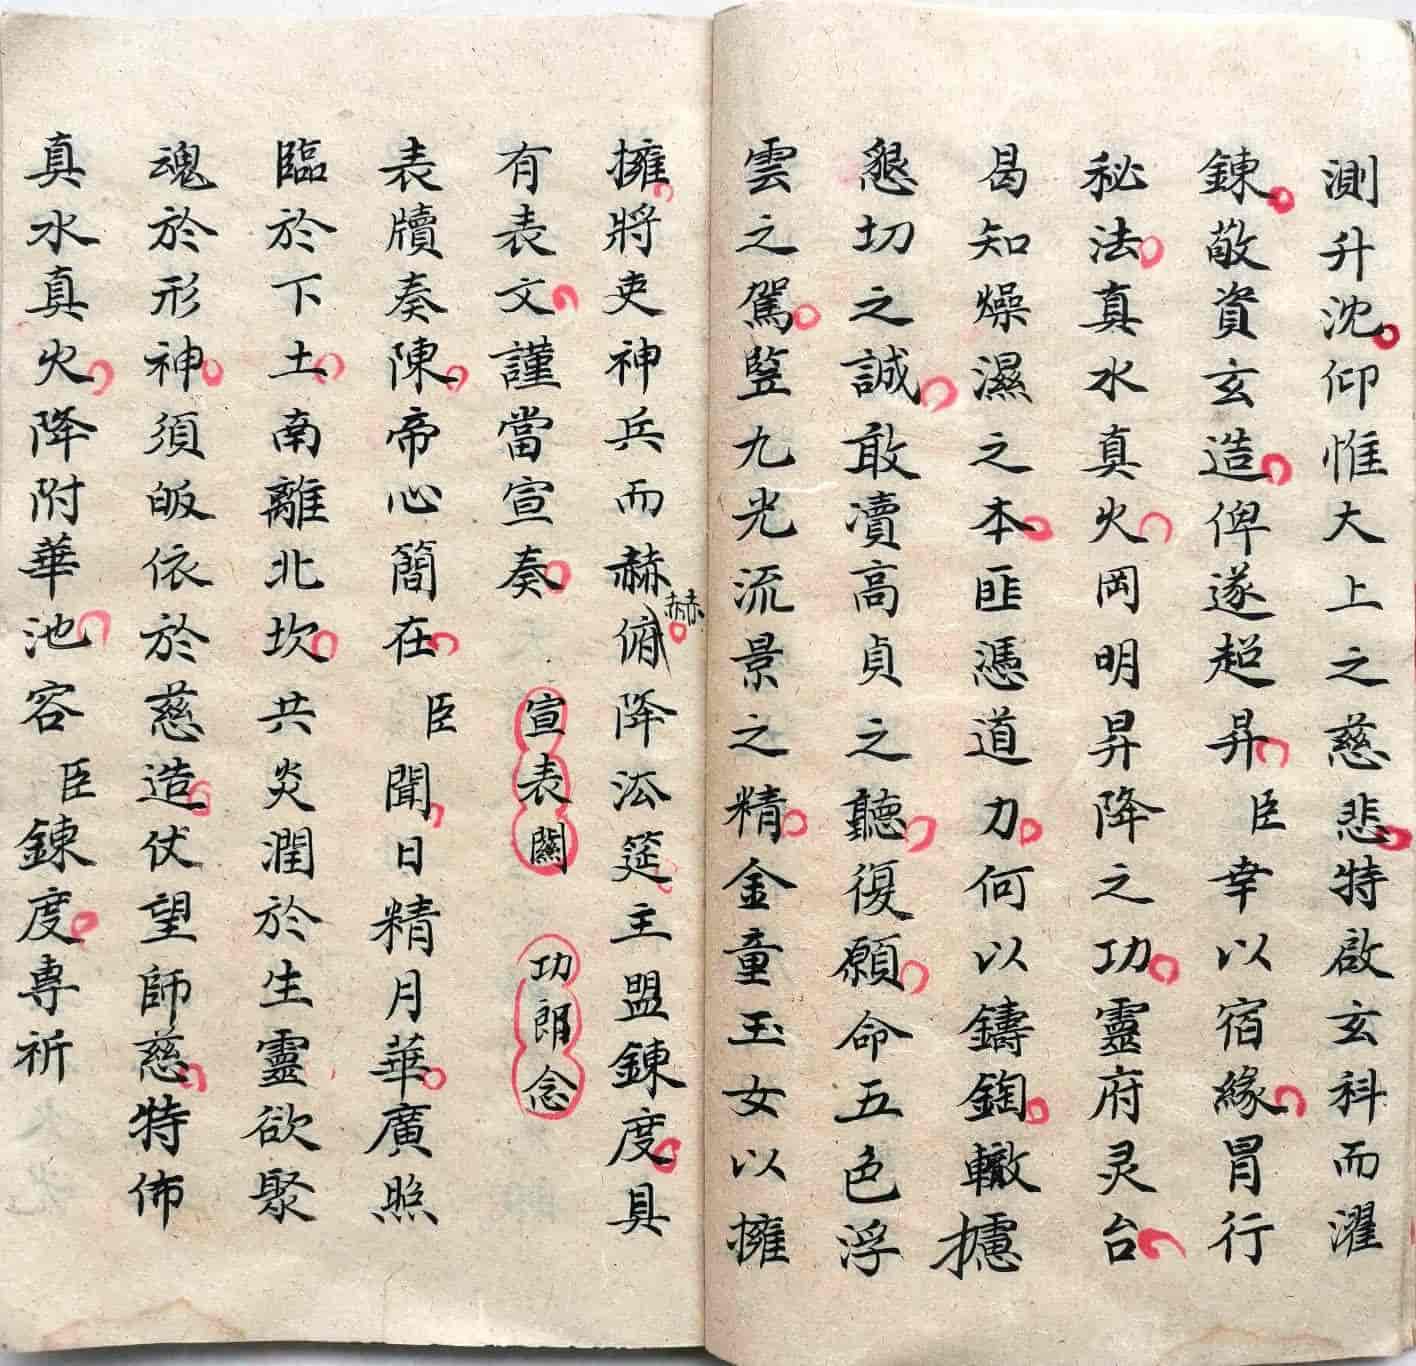 測升沈仰惟大上之慈悲特啟玄科而濯
鍊敬資玄造俾遂超昇臣幸以宿緣冒行
秘法真水真火岡明昇降之功靈府灵台
曷知燥濕之本匪憑道力何以鑄錭轍攄
懇切之誠敢瀆高貞之聽復願命五色浮
雲之駕豎九光流景之精金童玉女以擁
擁將吏神兵而赫赫俯降法筵主盟鍊度具
有表文謹當宣奏 宣表關 功朗念
表牘奏陳帝心簡在臣聞日精月華廣照
臨於下土南離北坎共炎潤於生靈欲聚
魂於形神須皈依於慈造伏望師慈特佈
真水真火降附華池容臣鍊度專祈